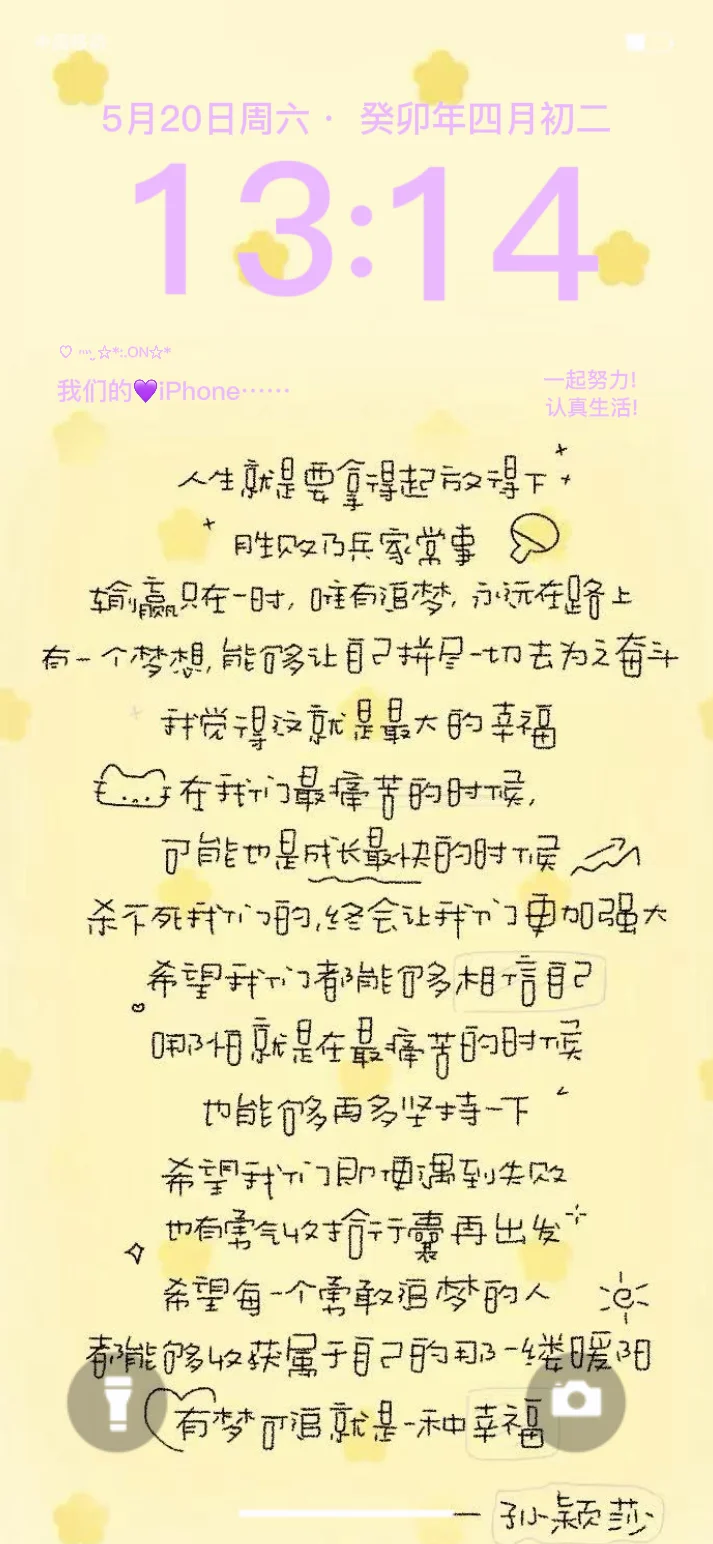 5月20日周六· 癸卯年四月初二
13:14
☆*:.ON☆*
我们的💜iPhone……
一起努力!
认真生活!
人生就是要拿得起放得下
胜败乃兵家常事
输赢只在一时,唯有追梦,永远在路上
有一个梦想,能够让自己拼尽一切去为之奋斗
我觉得这就是最大的幸福
在我们最痛苦的时候,
可能也是成长最快的时候
杀不死我们的,终会让我们更加强大
希望我们都能够相信自己
哪怕就是在最痛苦的时候
也能够再多坚持一下
希望我们即便遇到失败
也有勇气收拾行囊再出发
希望每一个勇敢追梦的人
都能够收获属于自己的那一缕暖阳
有梦可追就是一种幸福
— 孙颖莎